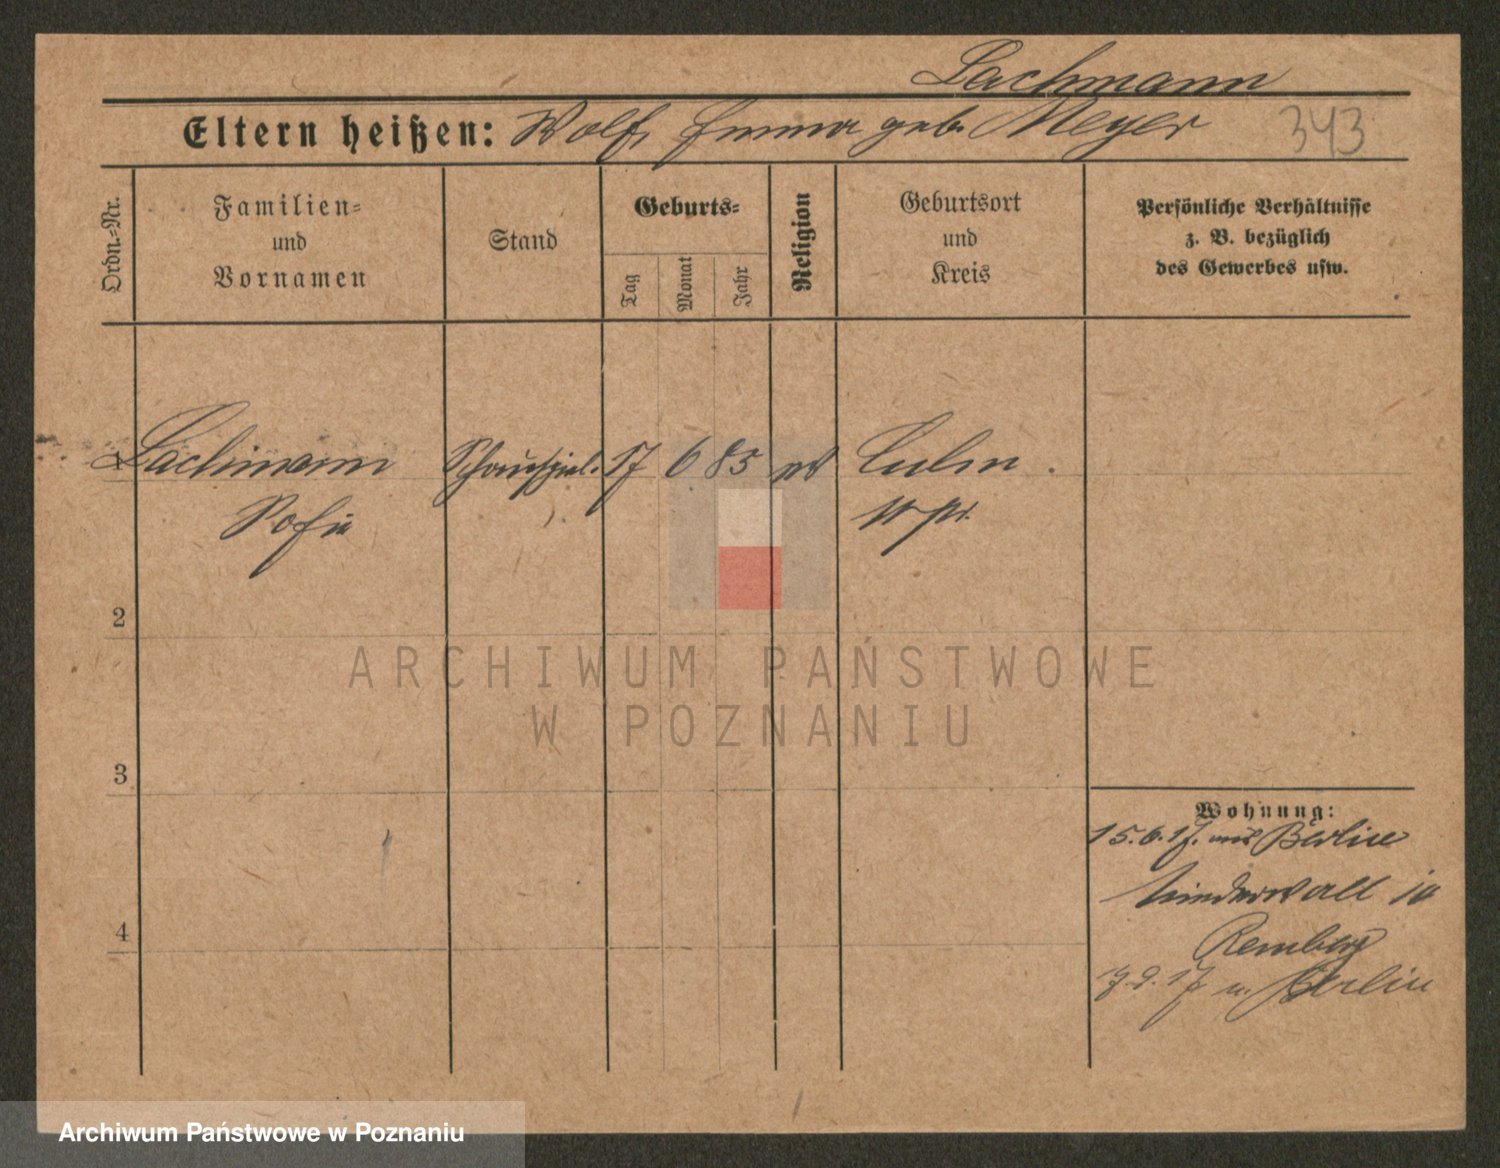 Lachmann
Eltern heißen: Wolf, Emma geb. Meyer 343
Ordn.=Nr.
Familien=
und
Vornamen
Stand
Geburts=
Tag
Monat
Jahr
Religion
Geburtsort
und
Kreis
Persönliche Verhältnisse
z. B. bezüglich
des Gewerbes usw.
1 Lachmann Schauspiel. 17 6 85 Culm
Sofie W/Pr.
2
ARCHIWUM PAŃSTWOWE
W POZNANIU
3
Wohnung:
15.6.17. aus Berlin
Niederwall
4
Remberg
n. Berlin
Archiwum Państwowe w Poznaniu